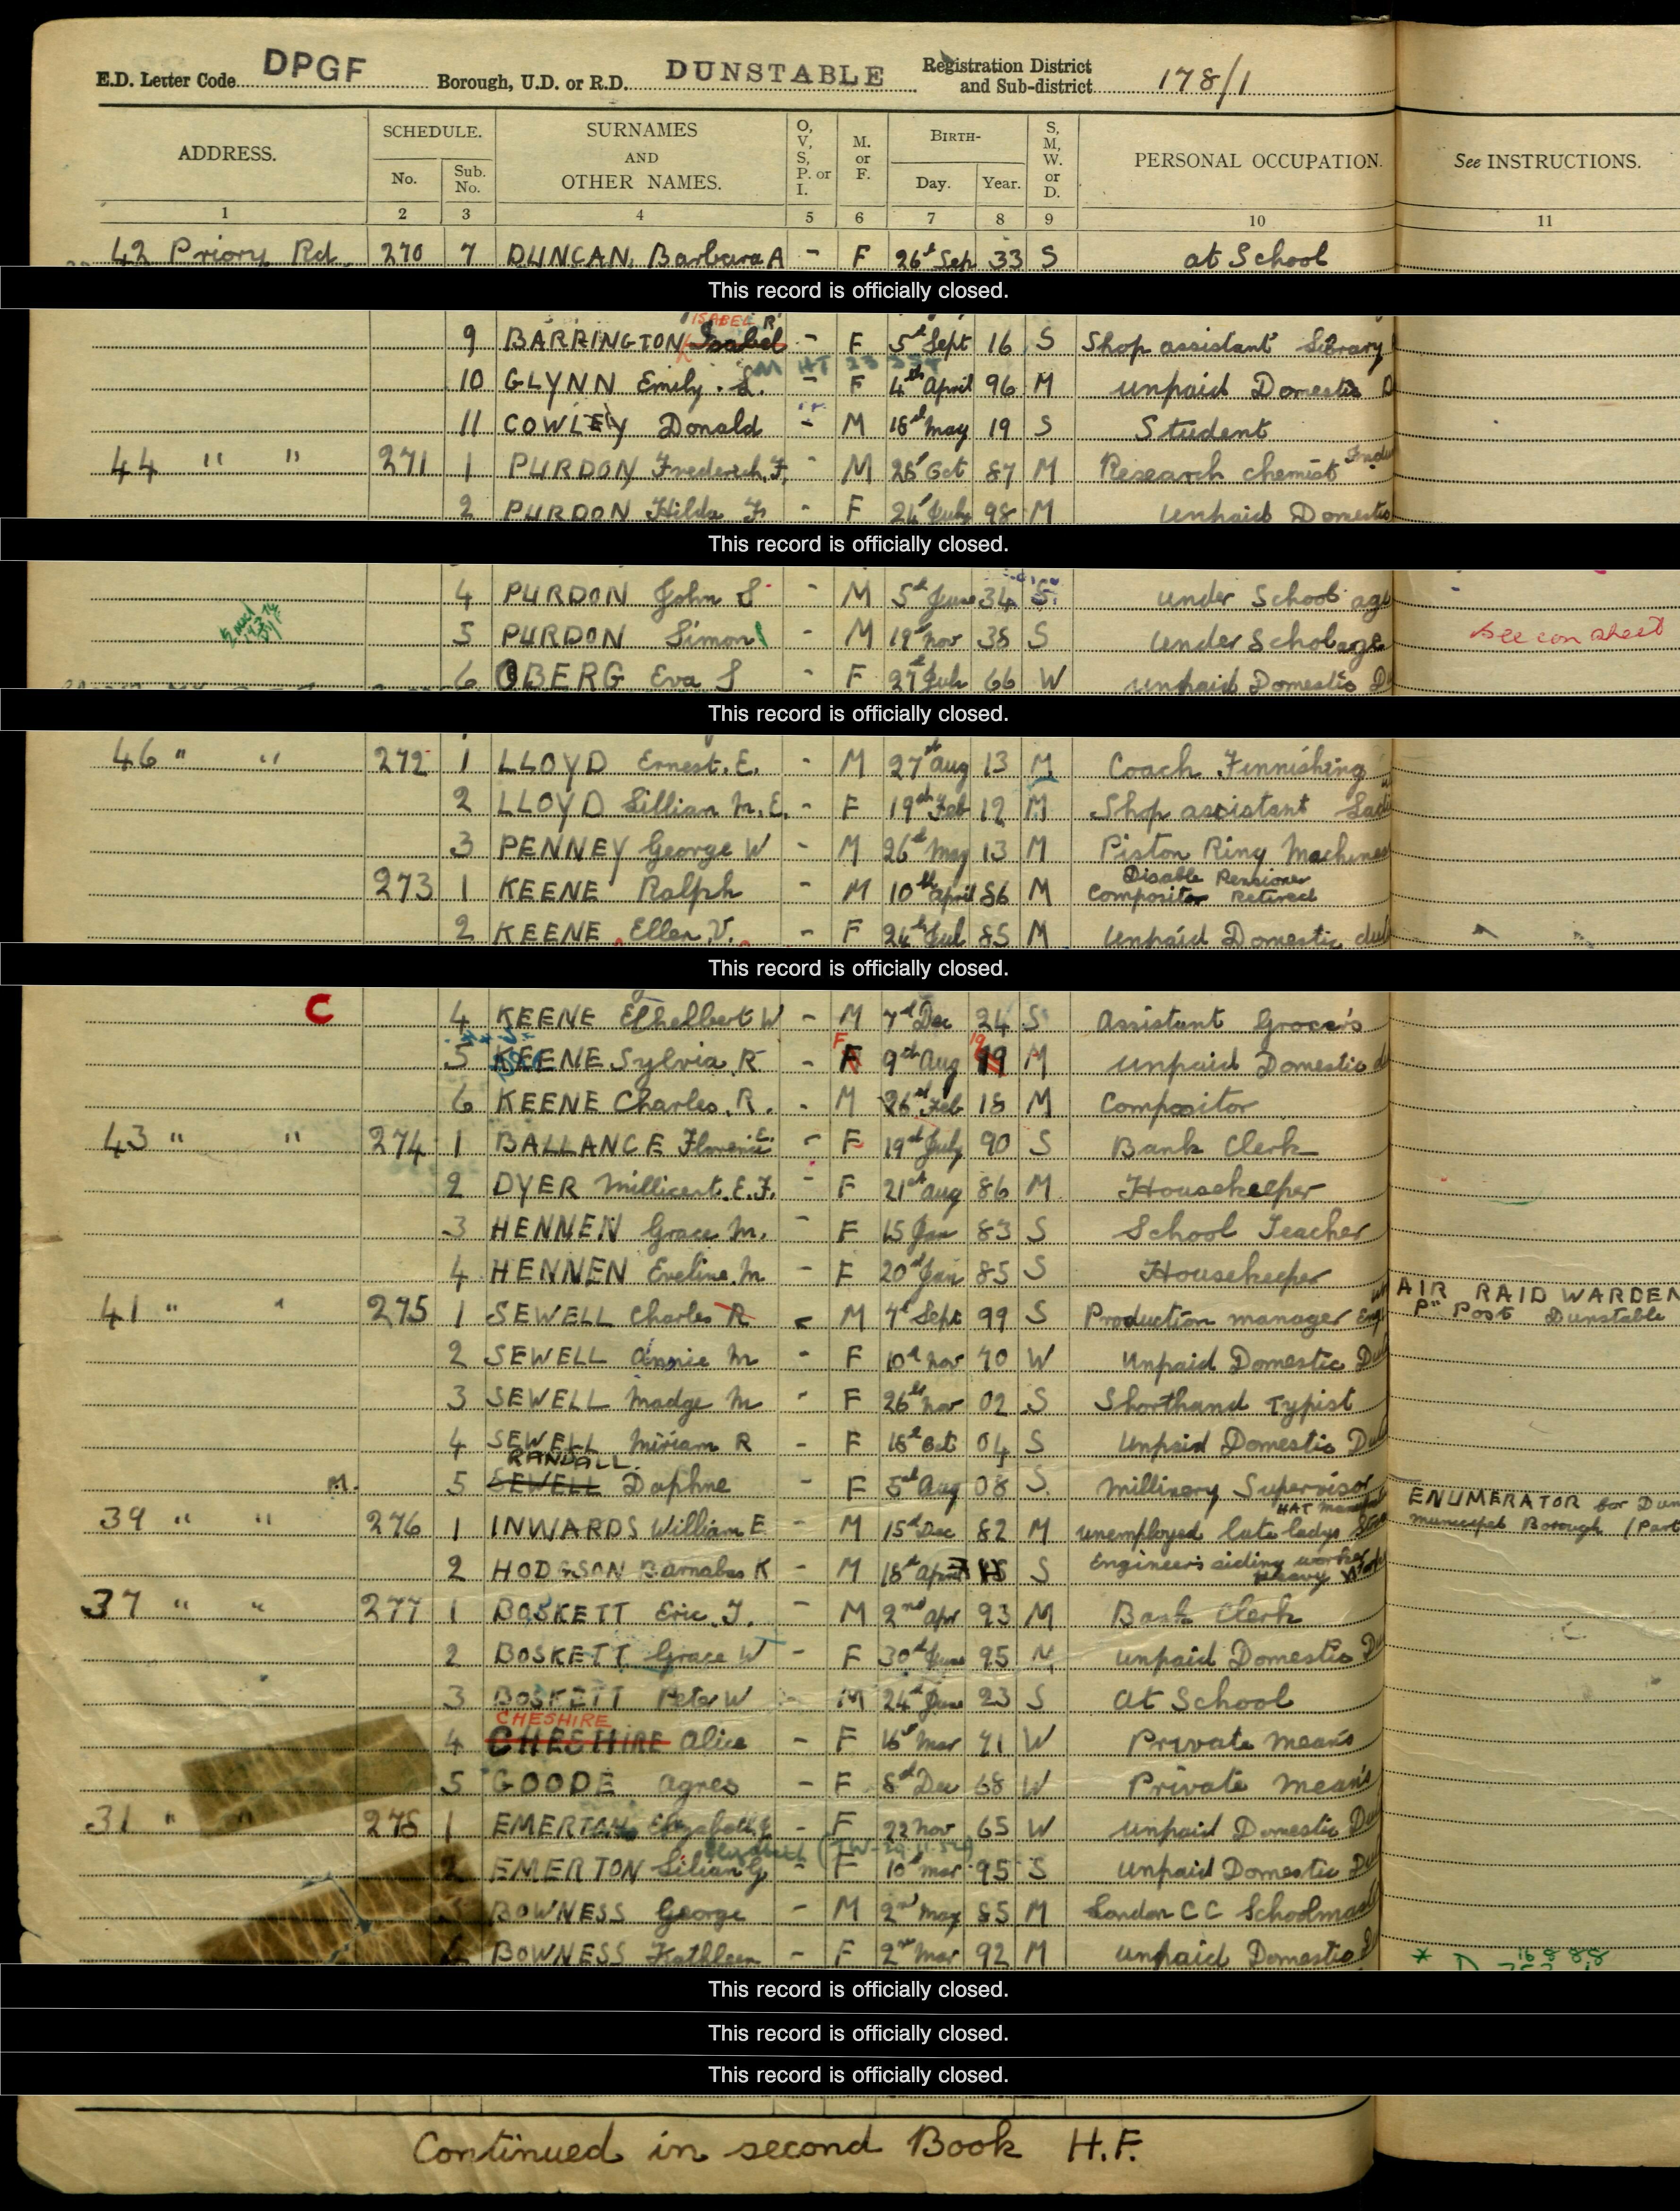 E.D. Letter Code DPGF Borough, U.D. or R.D. DUNSTABLE Registration District and Sub-district 178/1
ADDRESS. SCHEDULE. No. Sub. No. SURNAMES AND OTHER NAMES. O, V, S, P. or I. M. or F. BIRTH- Day. Year. S, M, W. or D. PERSONAL OCCUPATION. See INSTRUCTIONS.
1 2 3 4 5 6 7 8 9 10 11
42 Priory Rd. 270 7 DUNCAN, Barbara A - F 26th Sep 33 S at School
This record is officially closed.
ISABEL R
9 BARRINGTON Isabel - F 5th Sept 16 S Shop assistant Library
10 GLYNN Emily. L. - F 4th April 96 M unpaid Domestic D
11 COWLEY Donald - M 18th May 19 S Student
44 " " 271 1 PURDON Frederick. F. - M 28th Oct 87 M Research chemist
2 PURDON Hilda F - F 24th July 98 M Unpaid Domestic
This record is officially closed.
4 PURDON John S - M 5th June 34 S. under School age
5 PURDON Simon - M 19th Nov 35 S Under Schol age see con sheet
6 OBERG Eva S - F 27th July 66 W unpaid Domestic D
This record is officially closed.
46 " " 272 1 LLOYD Ernest. E. - M 27th Aug 13 M Coach Finnishing
2 LLOYD Lillian M. E. - F 19th Feb 12 M Shop assistant
3 PENNEY George W - M 26th May 13 M Piston Ring Machines
273 1 KEENE Ralph - M 10th April 86 M Disable Pensioner Compositor Retired
2 KEENE Ellen. V. - F 24th Jul 85 M Unpaid Domestic
This record is officially closed.
C 4 KEENE Ethelbert W - M 7th Dec 24 S Assistant Grocer's
5 KEENE Sylvia. R - F 9th Aug 19 M Unpaid Domestic
6 KEENE Charles. R. - M 26th Feb 18 M Compositor
43 " " 274 1 BALLANCE Florence E. - F 19th July 90 S Bank Clerk
2 DYER Millicent. E. F. - F 21st Aug 86 M Housekeeper
3 HENNEN Grace M. - F 15 Jan 83 S School Teacher
4 HENNEN Eveline. M - F 20th Jan 85 S Housekeeper
41 " " 275 1 SEWELL Charles R - M 4th Sept 99 S Production manager AIR RAID WARDEN
P" Post Dunstable
2 SEWELL Annie M - F 10th Nov 70 W Unpaid Domestic
3 SEWELL Madge M - F 26th Nov 02 S Shorthand Typist
4 SEWELL Miriam R - F 18th Oct 04 S Unpaid Domestic
RANDALL.
M. 5 SEWELL Daphne - F 5th Aug 08 S. Millinery Supervisor
ENUMERATOR for Dun
39 " " 276 1 INWARDS William E - M 15th Dec 82 M unemployed late ladys HAT Municipal Borough (Part
2 HODGSON Barnabas K - M 18th April S Engineer's aiding worker Heavy
37 " " 277 1 BOSKETT Eric J. - M 2nd Apr 93 M Bank Clerk
2 BOSKETT Grace W - F 30th June 95 M unpaid Domestic
3 BOSKETT Peter W - M 24th June 23 S At School
CHESHIRE
4 CHESHIRE Alice - F 16th Mar 71 W Private Means
5 GOODE Agnes - F 8th Dec 68 W Private Means
31 " " 278 1 EMERTON Elizabeth - F 22 Nov 65 W Unpaid Domestic
2 EMERTON Lilian G - F 10th Mar 95 S Unpaid Domestic
BOWNESS George - M 2nd May 85 M London CC Schoolmast
BOWNESS Kathleen - F 2nd Mar 92 M Unpaid Domestic
This record is officially closed.
This record is officially closed.
This record is officially closed.
Continued in second Book H.F.